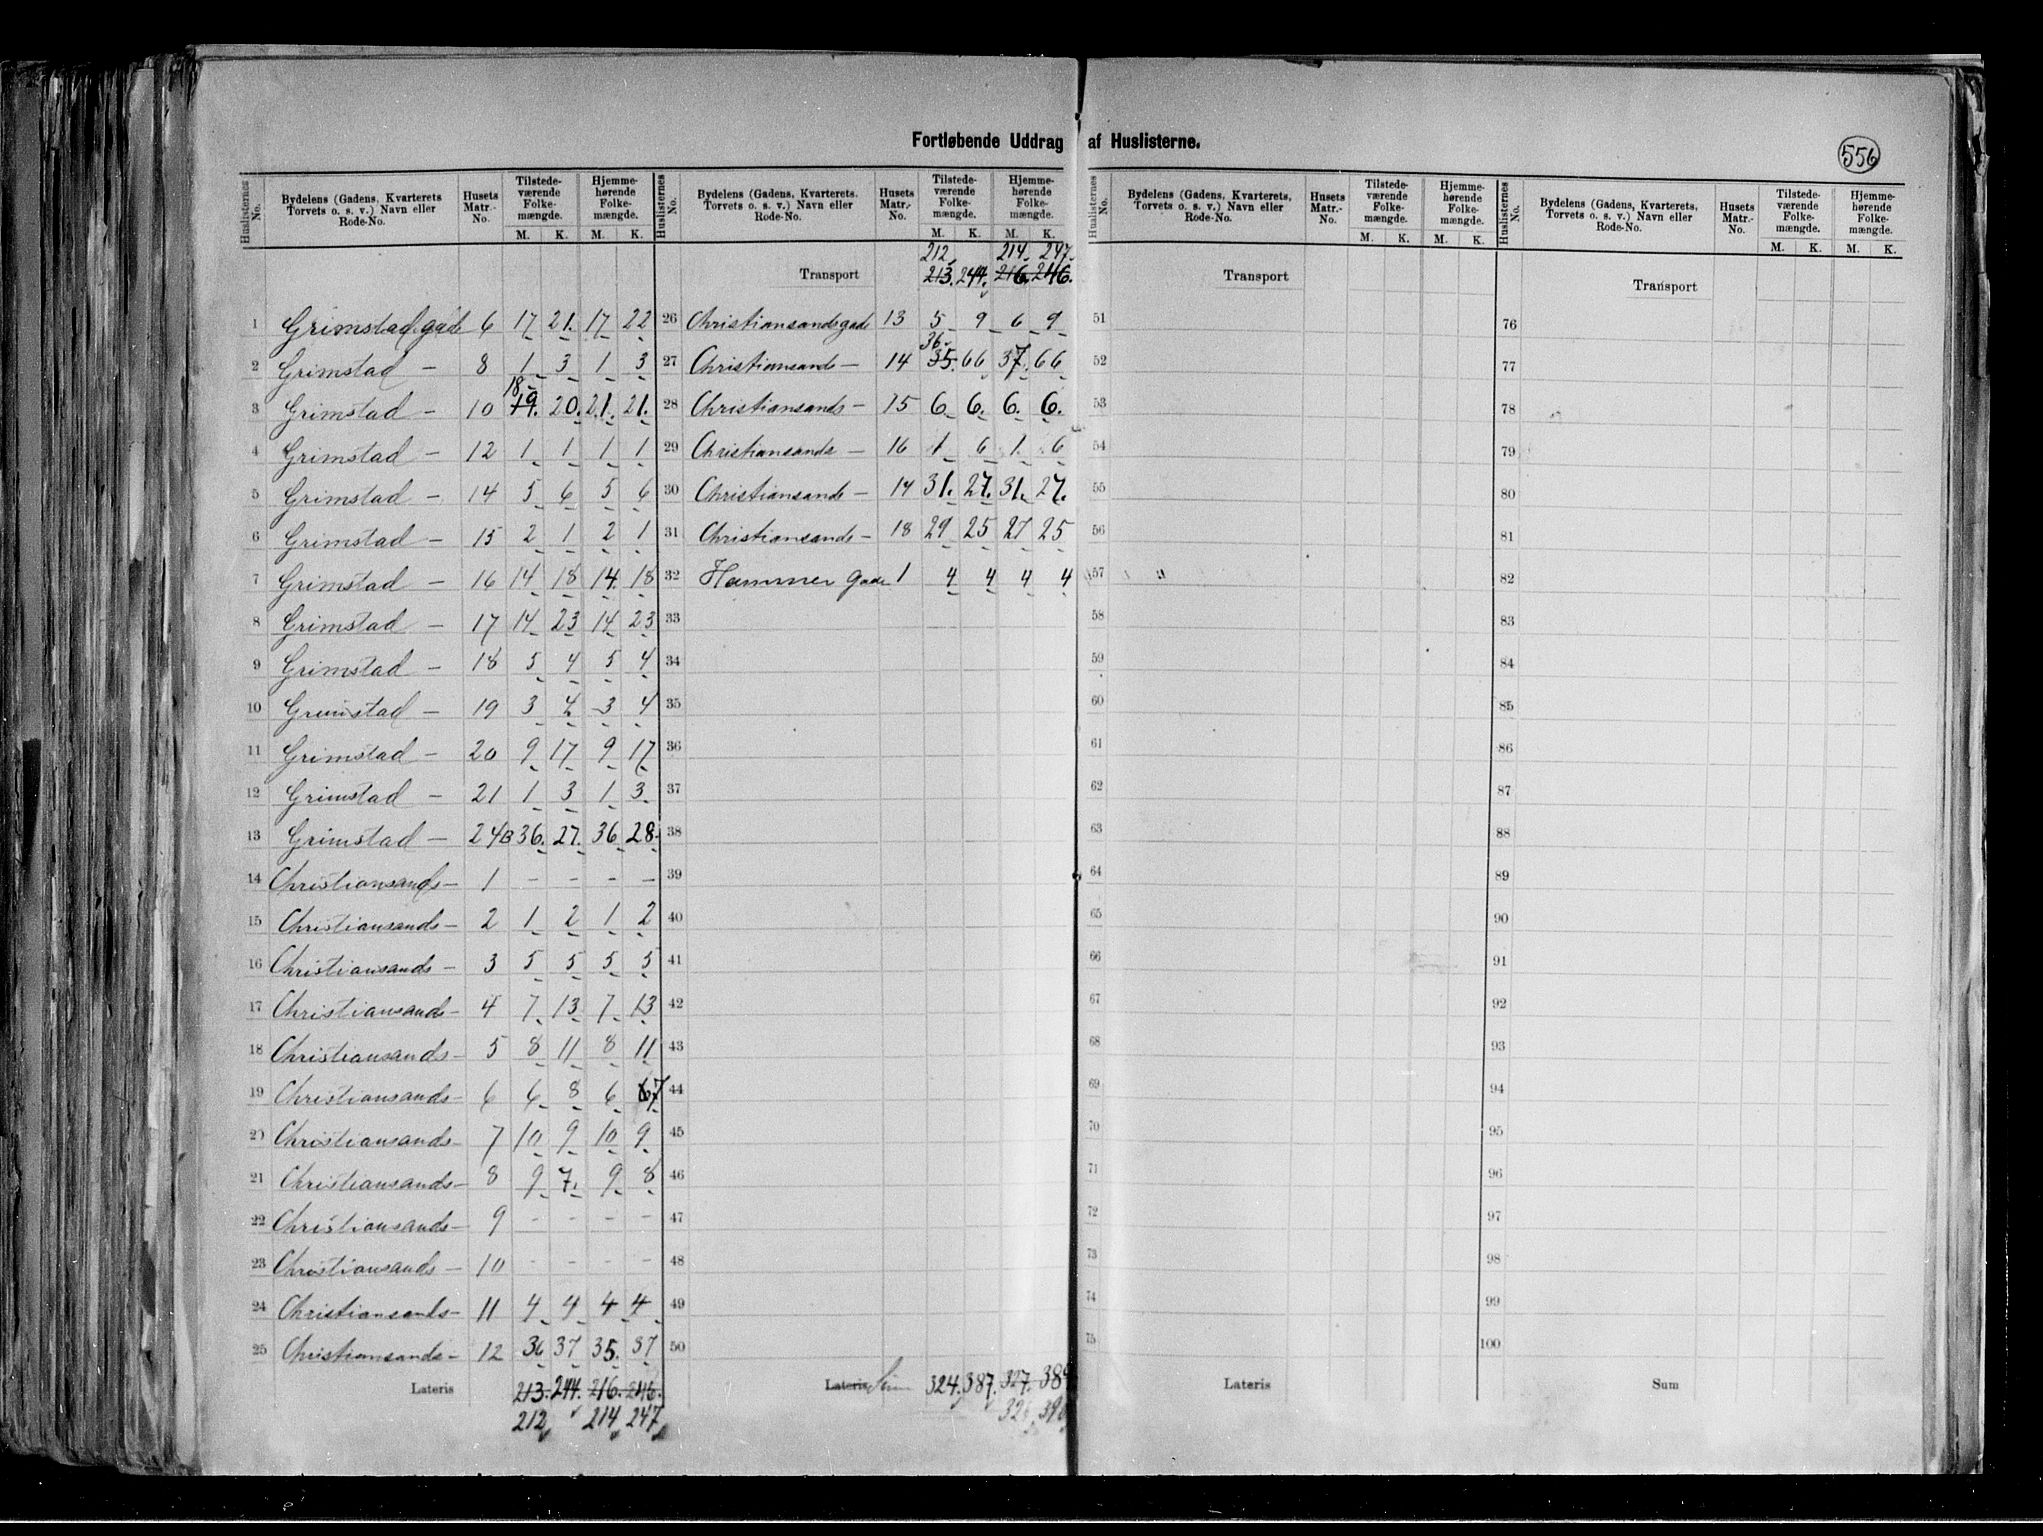 Fortløbende Uddrag af Huslisterne.
556
Huslisternes No. Bydelens (Gadens, Kvarterets Torvets o. s. v.) Navn eller Rode-No. Husets Matr.-No. Tilstede-værende Folke-mængde. Hjemme-hørende Folke-mængde.
M. K. M. K.
1 Grimstad gade 6 17 21. 17 22
2 Grimstad — 8 1 3 1 3
18
3 Grimstad — 10 19. 20. 21. 21.
4 Grimstad — 12 1 1 1 1
5 Grimstad — 14 5 6 5 6
6 Grimstad — 15 2 1 2 1
7 Grimstad — 16 14 18 14. 18
8 Grimstad — 17 14 23 14 23
9 Grimstad — 18 5 4 5 4
10 Grimstad — 19 3 4 3 4
11 Grimstad — 20 9 17 9 17
12 Grimstad — 21 1 3 1 3
13 Grimstad — 24B 36. 27. 36 28.
14 Christiansands — 1 - - - -
15 Christiansands — 2 1 2 1 2
16 Christiansands — 3 5 5 5 5
17 Christiansands — 4 7 13 7 13
18 Christiansands — 5 8 11 8 11
19 Christiansands — 6 6 8 6 7
20 Christiansands — 7 10 9 10 9
21 Christiansands — 8 9 7. 9 8
22 Christiansands — 9 - - - -
23 Christiansands — 10 - - - -
24 Christiansands — 11 4 4 4 4
25 Christiansands — 12 36 37 35. 37
Lateris 213. 244. 216. 246.
212 214 247
Huslisternes No. Bydelens (Gadens, Kvarterets. Torvets o. s. v.) Navn eller Rode-No. Husets Matr.-No. Tilstede-værende Folke-mængde. Hjemme-hørende Folke-mængde.
M. K. M. K.
212 214. 247.
Transport 213. 244. 216. 246.
26 Christiansandsgade 13 5 9 6 9
36.
27 Christiansands — 14 35. 66 37. 66
28 Christiansands — 15 6 6. 6. 6.
29 Christiansands — 16 1 6 1 6
30 Christiansands — 17 31. 27. 31. 27.
31 Christiansands — 18 29 25 27 25
32 Hammer gade 1 4 4 4 4
33
34
35
36
37
38
39
40
41
42
43
44
45
46
47
48
49
50
Lateris Sum 324. 387. 327. 389
Huslisternes No. Bydelens (Gadens, Kvarterets, Torvets o. s. v.) Navn eller Rode-No. Husets Matr.-No. Tilstede-værende Folke-mængde. Hjemme-hørende Folke-mængde.
M. K. M. K.
Transport
51
52
53
54
55
56
57
58
59
60
61
62
63
64
65
66
67
68
69
70
71
72
73
74
75
Lateris
Huslisternes No. Bydelens (Gadens, Kvarterets, Torvets o. s. v.) Navn eller Rode-No. Husets Matr.-No. Tilstede-værende Folke-mængde. Hjemme-hørende Folke-mængde.
M. K. M. K.
Transport
76
77
78
79
80
81
82
83
84
85
86
87
88
89
90
91
92
93
94
95
96
97
98
99
100
Sum